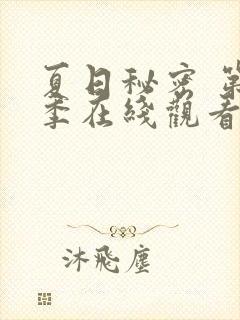 夏日秘密 第
季在綫觀看
沐飛塵